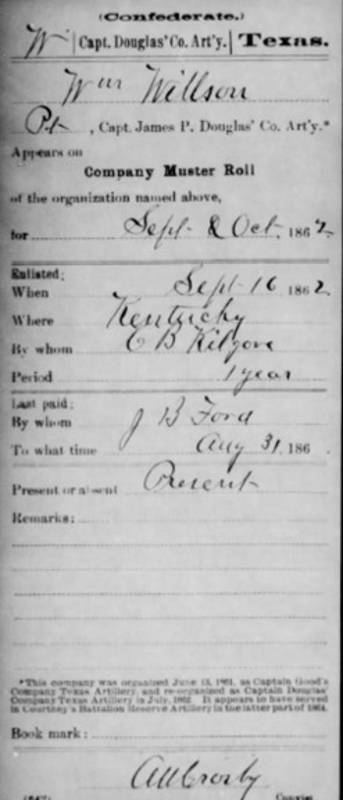 (Confederate.)
W | Capt. Douglas' Co. Art'y. | Texas.
Wm Willson
Pt , Capt. James P. Douglas' Co. Art'y.*
Appears on
Company Muster Roll
of the organization named above,
for Sept & Oct, 1862.
Enlisted:
When Sept 16, 1862
Where Kentucky
By whom C B Kilgore
Period 1 year
Last paid:
By whom J B Ford
To what time Aug 31, 186 .
Present or absent Present
Remarks:
*This company was organized June 13, 1861, as Captain Good's
Company Texas Artillery, and re-organized as Captain Douglas'
Company Texas Artillery in July, 1862. It appears to have served
in Courtney's Battalion Reserve Artillery in the latter part of 1864.
Book mark:
(642) Copyist.